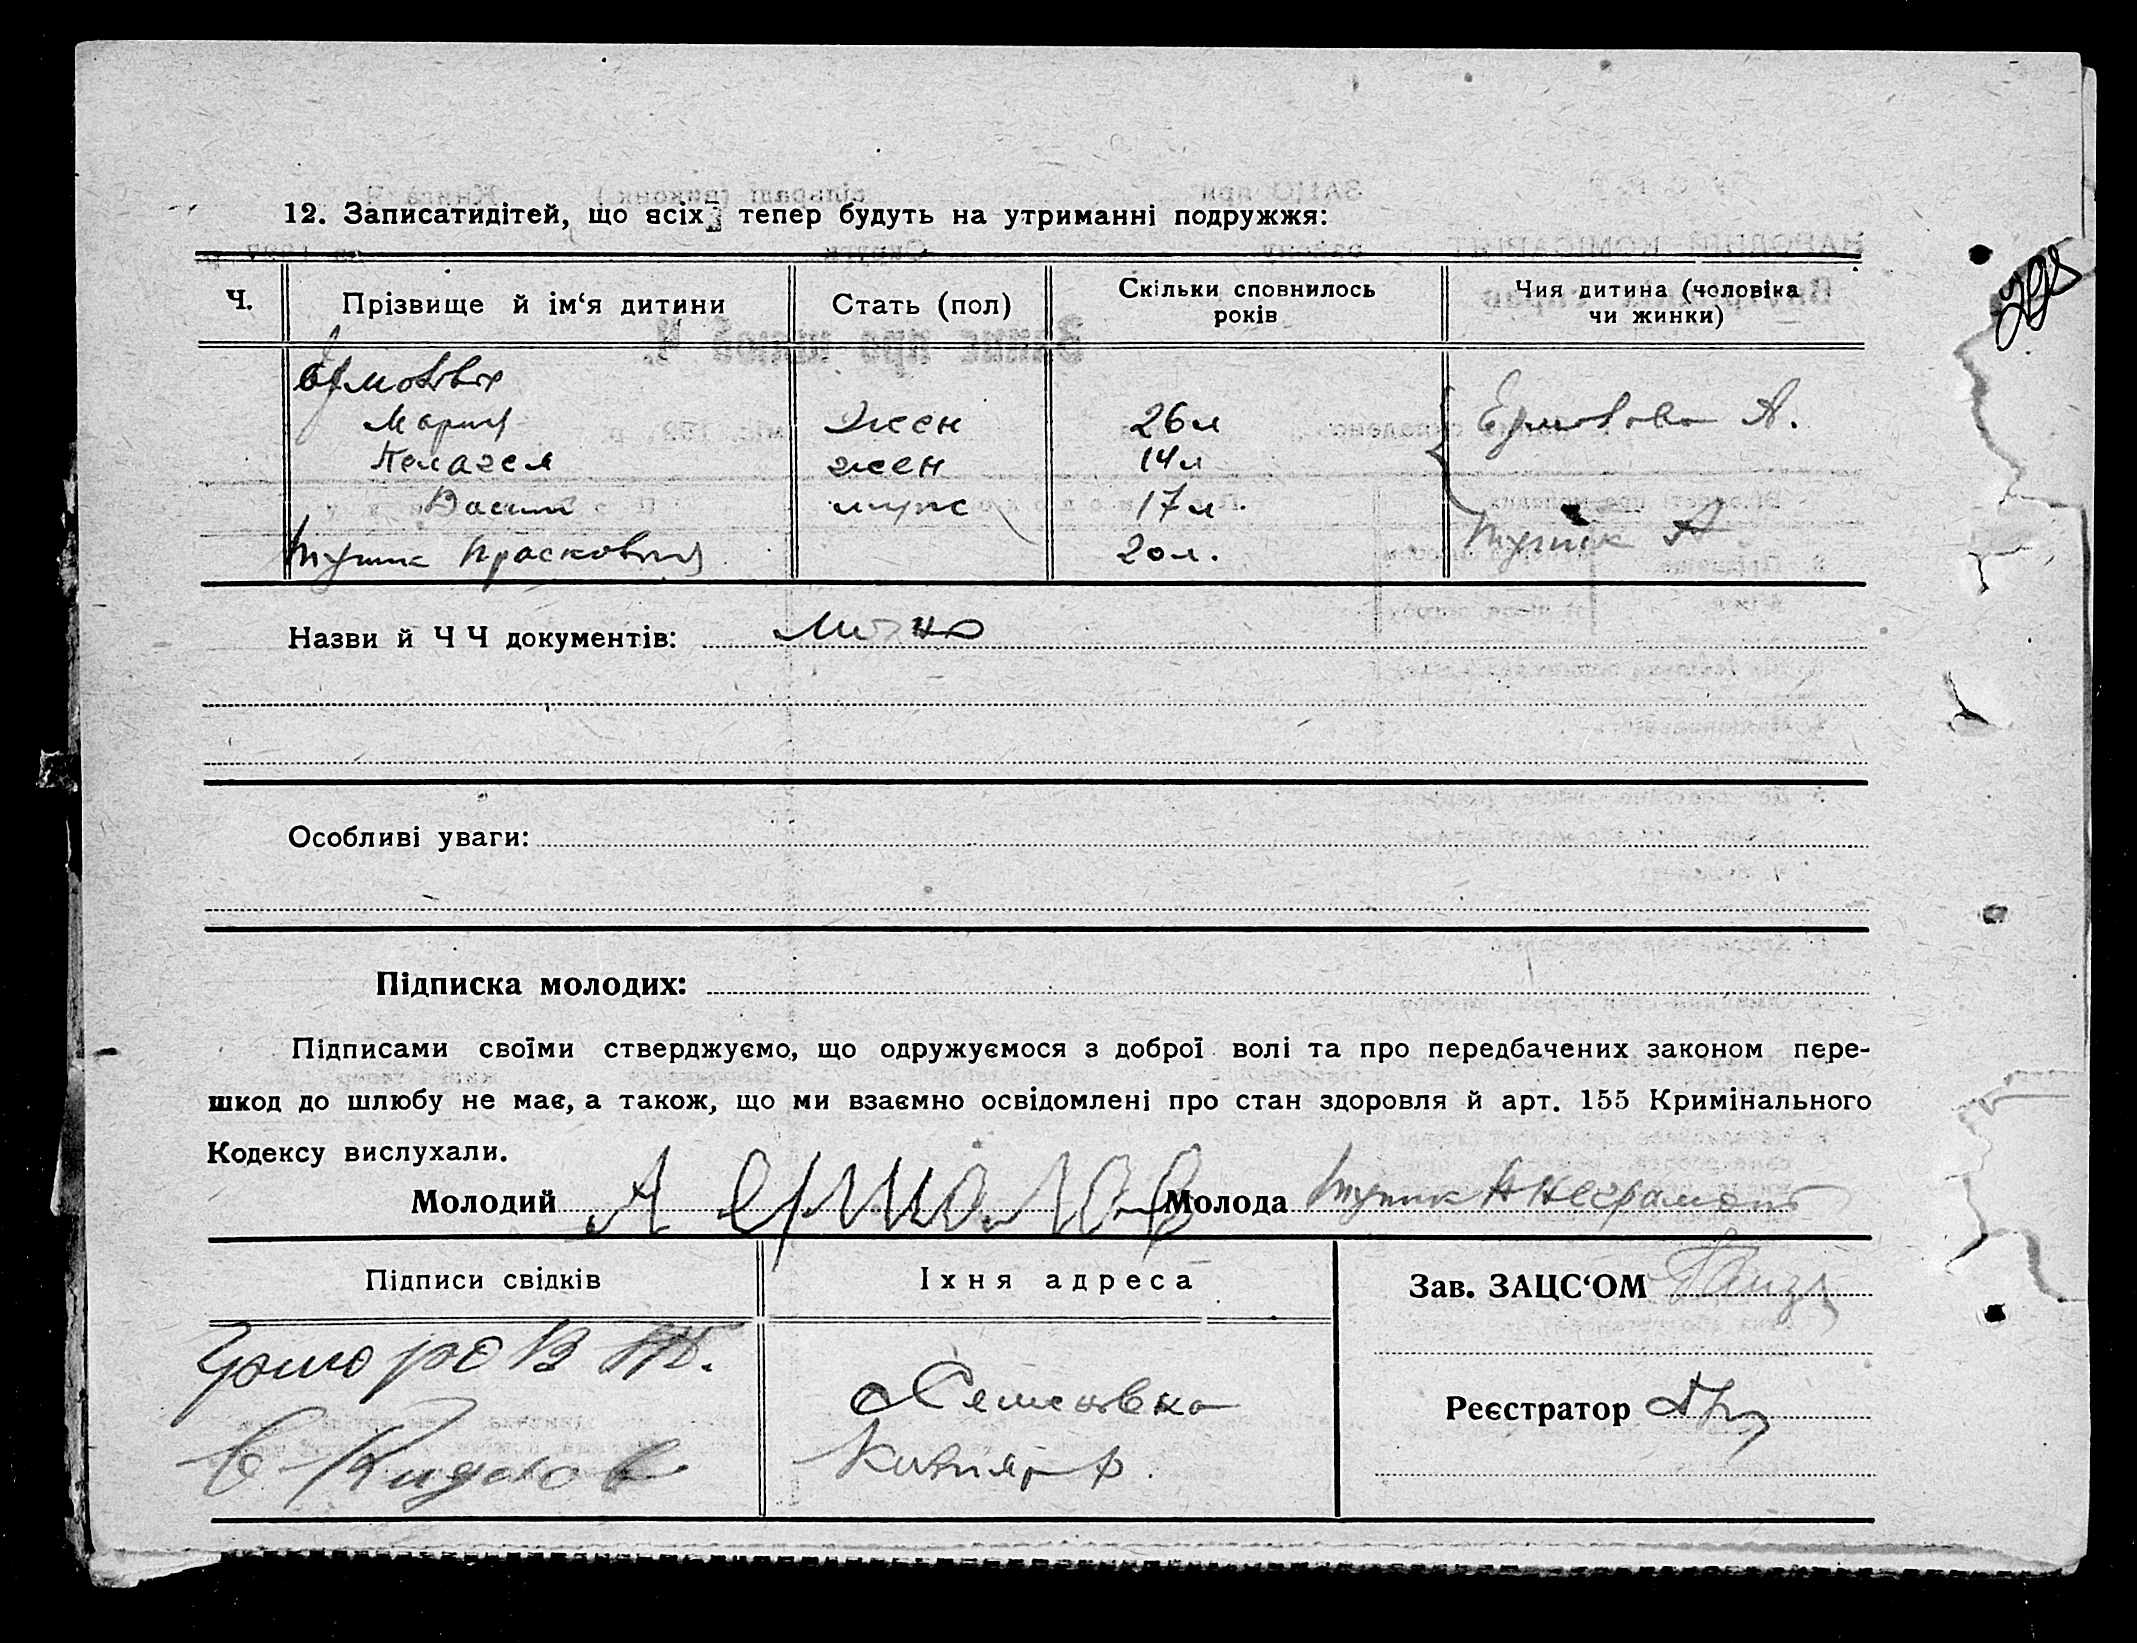 12. Записатидітей, що всіх тепер будуть на утриманні подружжя:
Ч. Прізвище й ім‘я дитини Стать (пол) Скільки сповнилось років Чия дитина (чоловіка чи жинки)
Мария жен 26 л Ермолова А.
Пелагея жен 14 л
Васил муж 17 л.
Тупик Прасковия 20 л. Тупик А
Назви й Ч Ч документів:
Особливі уваги:
Підписка молодих:
Підписами своїми стверджуємо, що одружуємося з доброї волі та про передбачених законом пере-
шкод до шлюбу не має, а також, що ми взаємно освідомлені про стан здоровля й арт. 155 Кримінального
Кодексу вислухали.
Молодий А Молода Тупик А неграмот
Підписи свідків Їхня адреса Зав. ЗАЦС‘ОМ
Семеновка
Реєстратор